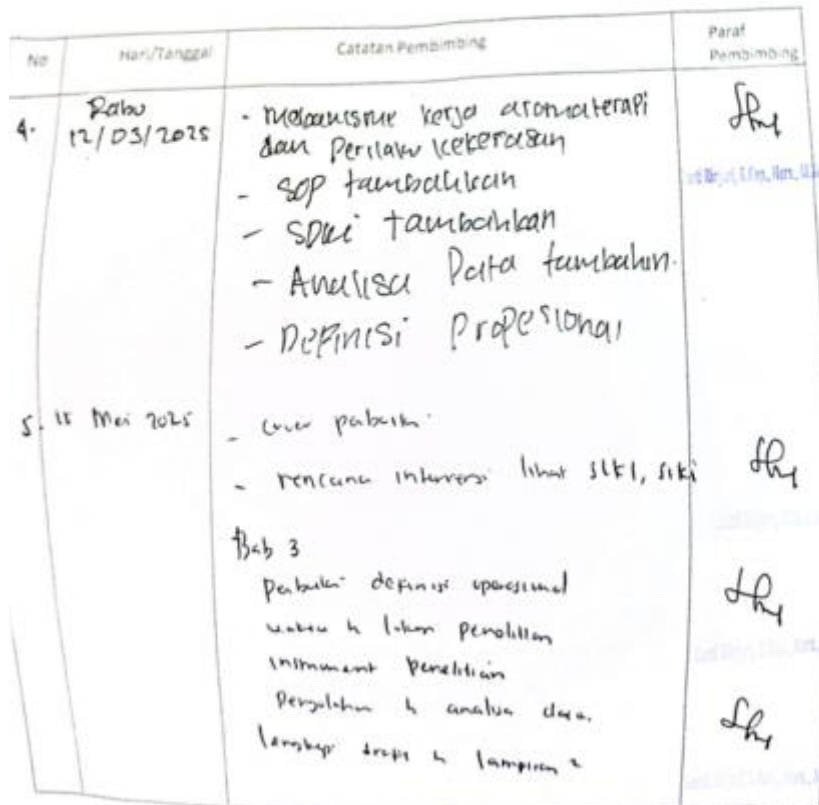 No Hari/Tanggal Catatan Pembimbing Paraf Pembimbing
4. Rabu 12/03/2025
- Mekanisme kerja aromaterapi
dan Perilaku kekerasan
- SOP tambahkan
- SDKI tambahkan
- Analisa Data tambahan.
- Definisi Propesional
5. Mei 2025
- cover perbaiki
- rencana intervensi lihat SLKI, SIKI
Bab 3
perbaiki definisi operasional
waktu & lokasi penelitian
instrument penelitian
Pengolahan & analisa data.
lengkapi & lampiran²